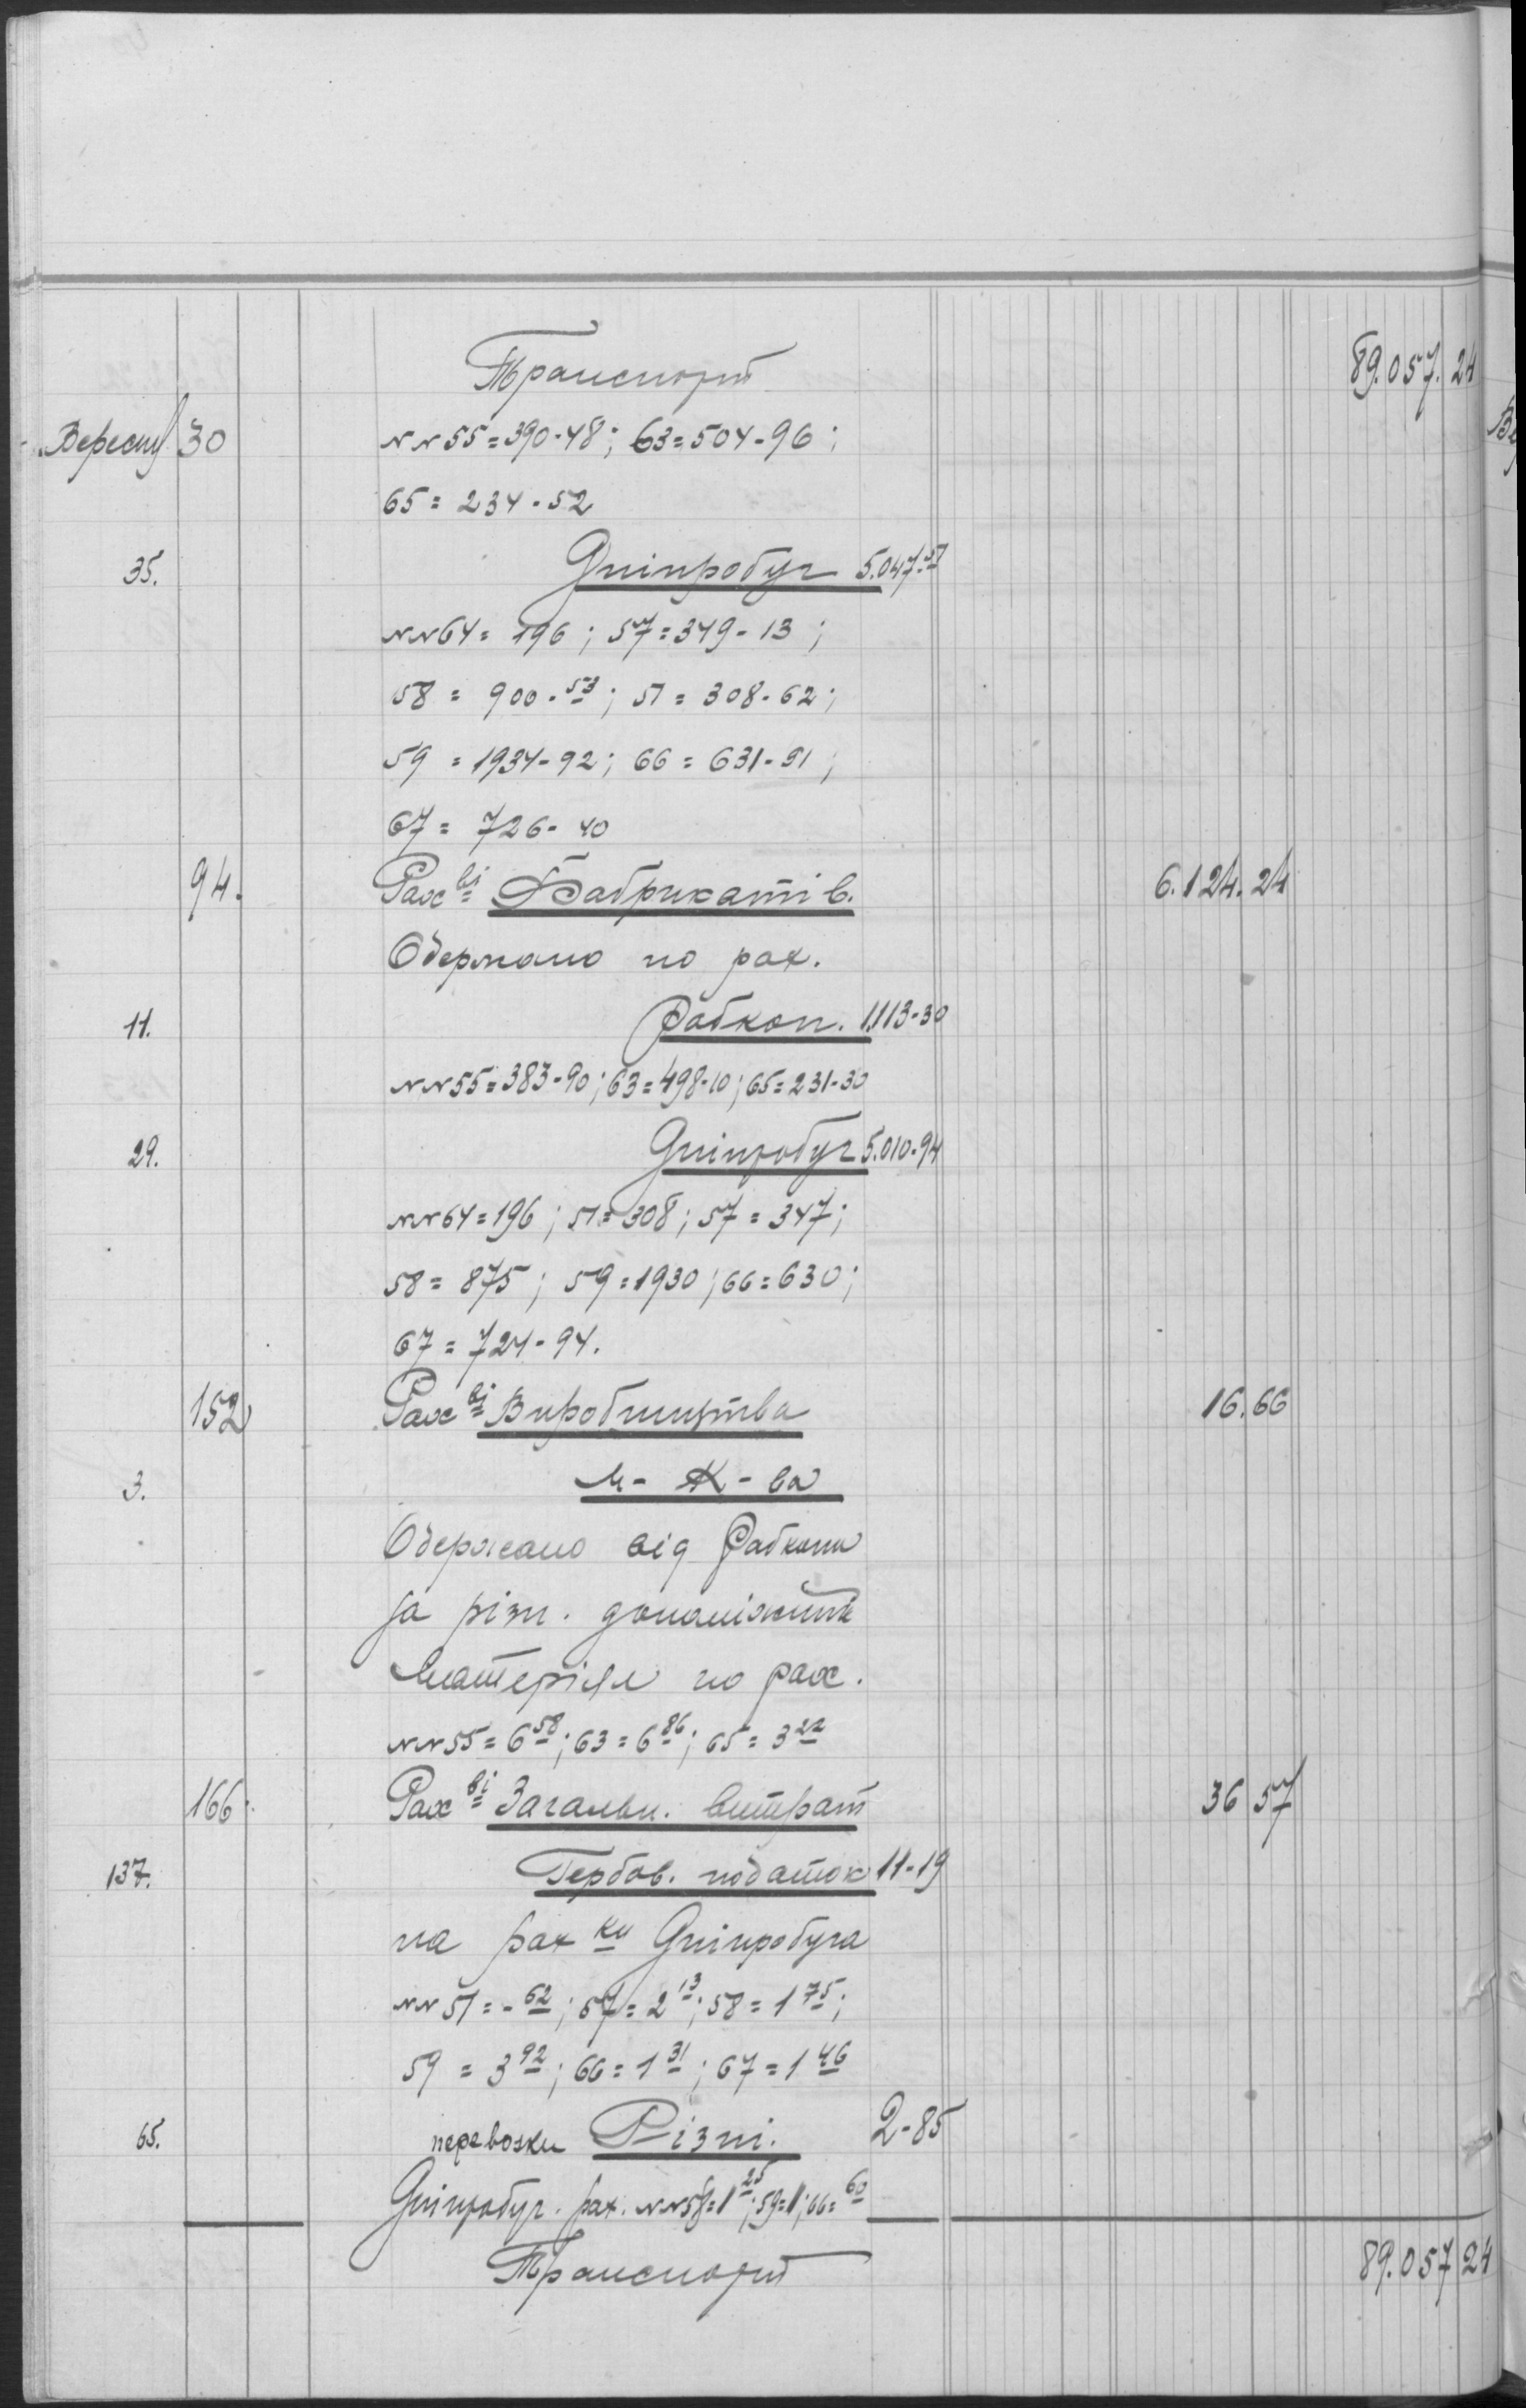 Транспорт 89.057.24
Вересня 30 №№ 55=390-48; 63=504-96;
65=234-52
35. Дніпробуг 5.047.57
№№ 64=196; 57=349-13;
58=900-53; 51=308-62;
59=1934-92; 66=631-91;
67=726-40
94. Рах ві Фабрикатів. 6.124.24
Одержано по рах.
11. Робкоп. 1.113-30
№№ 55=383-90; 63=498-10; 65=231-30
29. Дніпробуг 5.010-94
№№ 64=196; 51=308; 57=347;
58=875; 59=1930; 66=630;
67=724-94.
152 Рах ві Виробництва 16.66
3. М-К-ва
Одержано від Робкопа
за різн. допоміжний
матеріял по рах.
№№ 55=6 58; 63=6 86; 65=3 22
166. Рах ві Загальн. витрат 36 57
137. Гербов. податок 11-19
на рах ки Дніпробуга
№№ 51=-62; 57=2 13; 58=1 75;
59=3 92; 66=1 31; 67=1 46
65. перевозки Різні. 2-85
Дніпробуг. рах. №№ 58=1 25; 59=1; 66=60
Транспорт 89.057 24